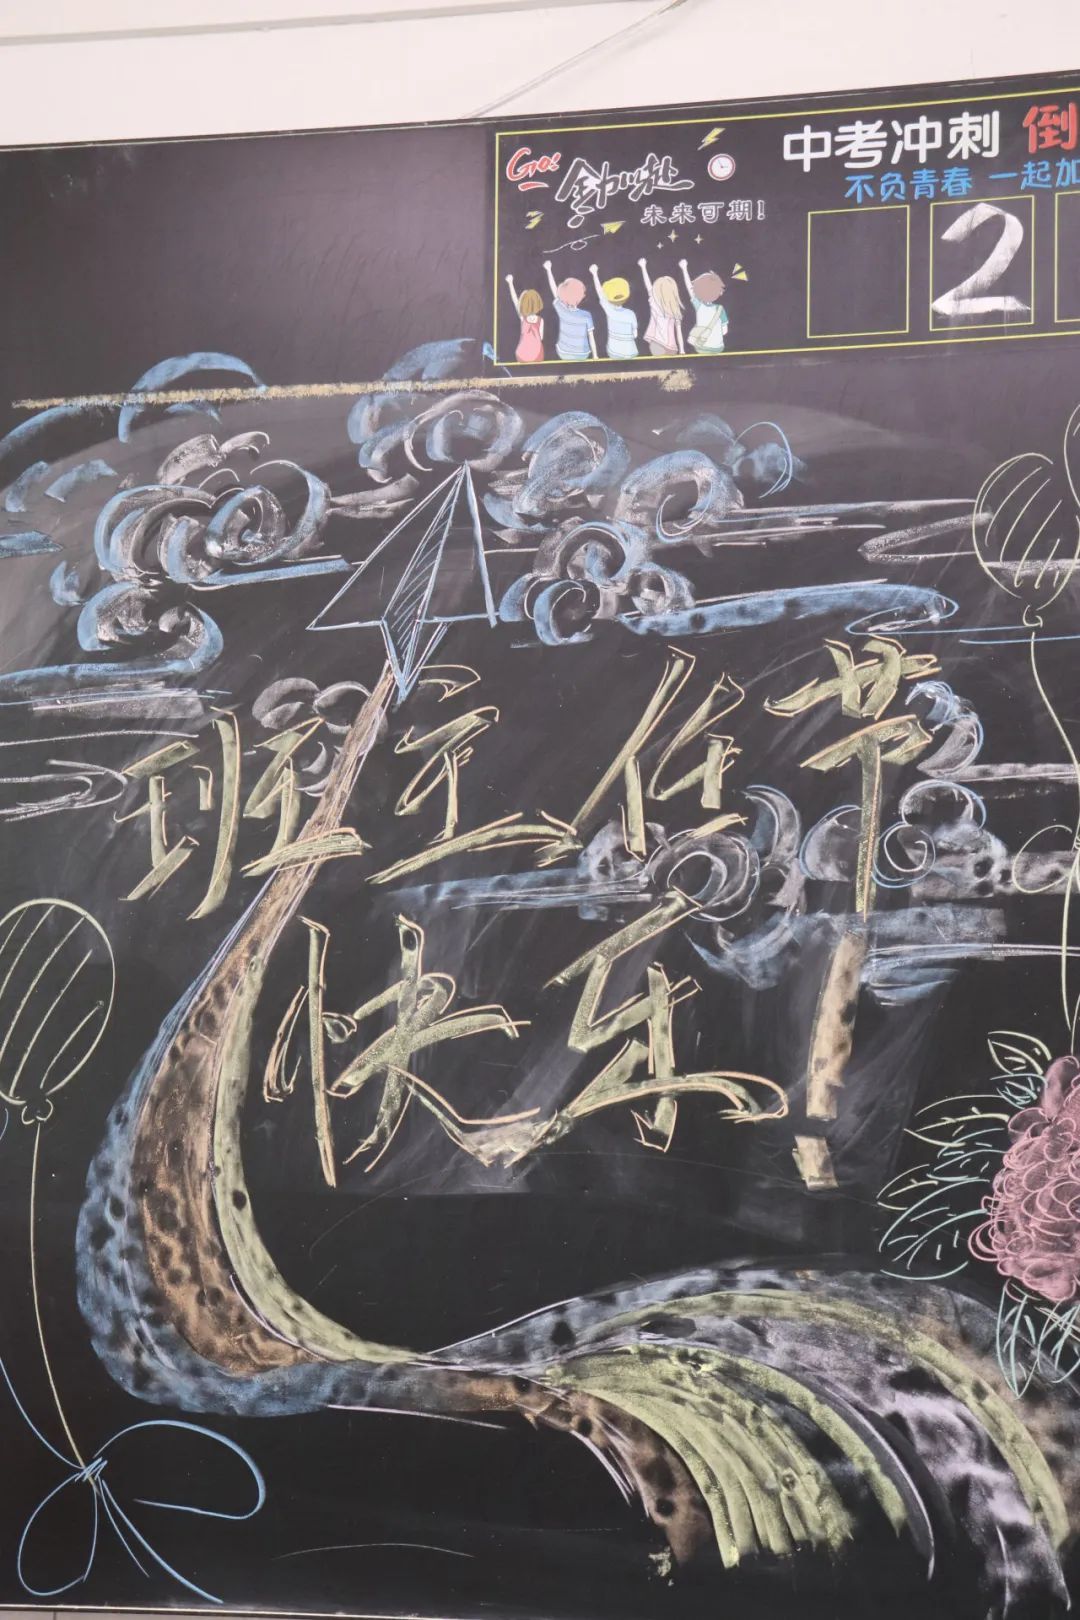 中考冲刺 倒
不负青春 一起加
Go!
未来可期!
2
班主任节
快乐!